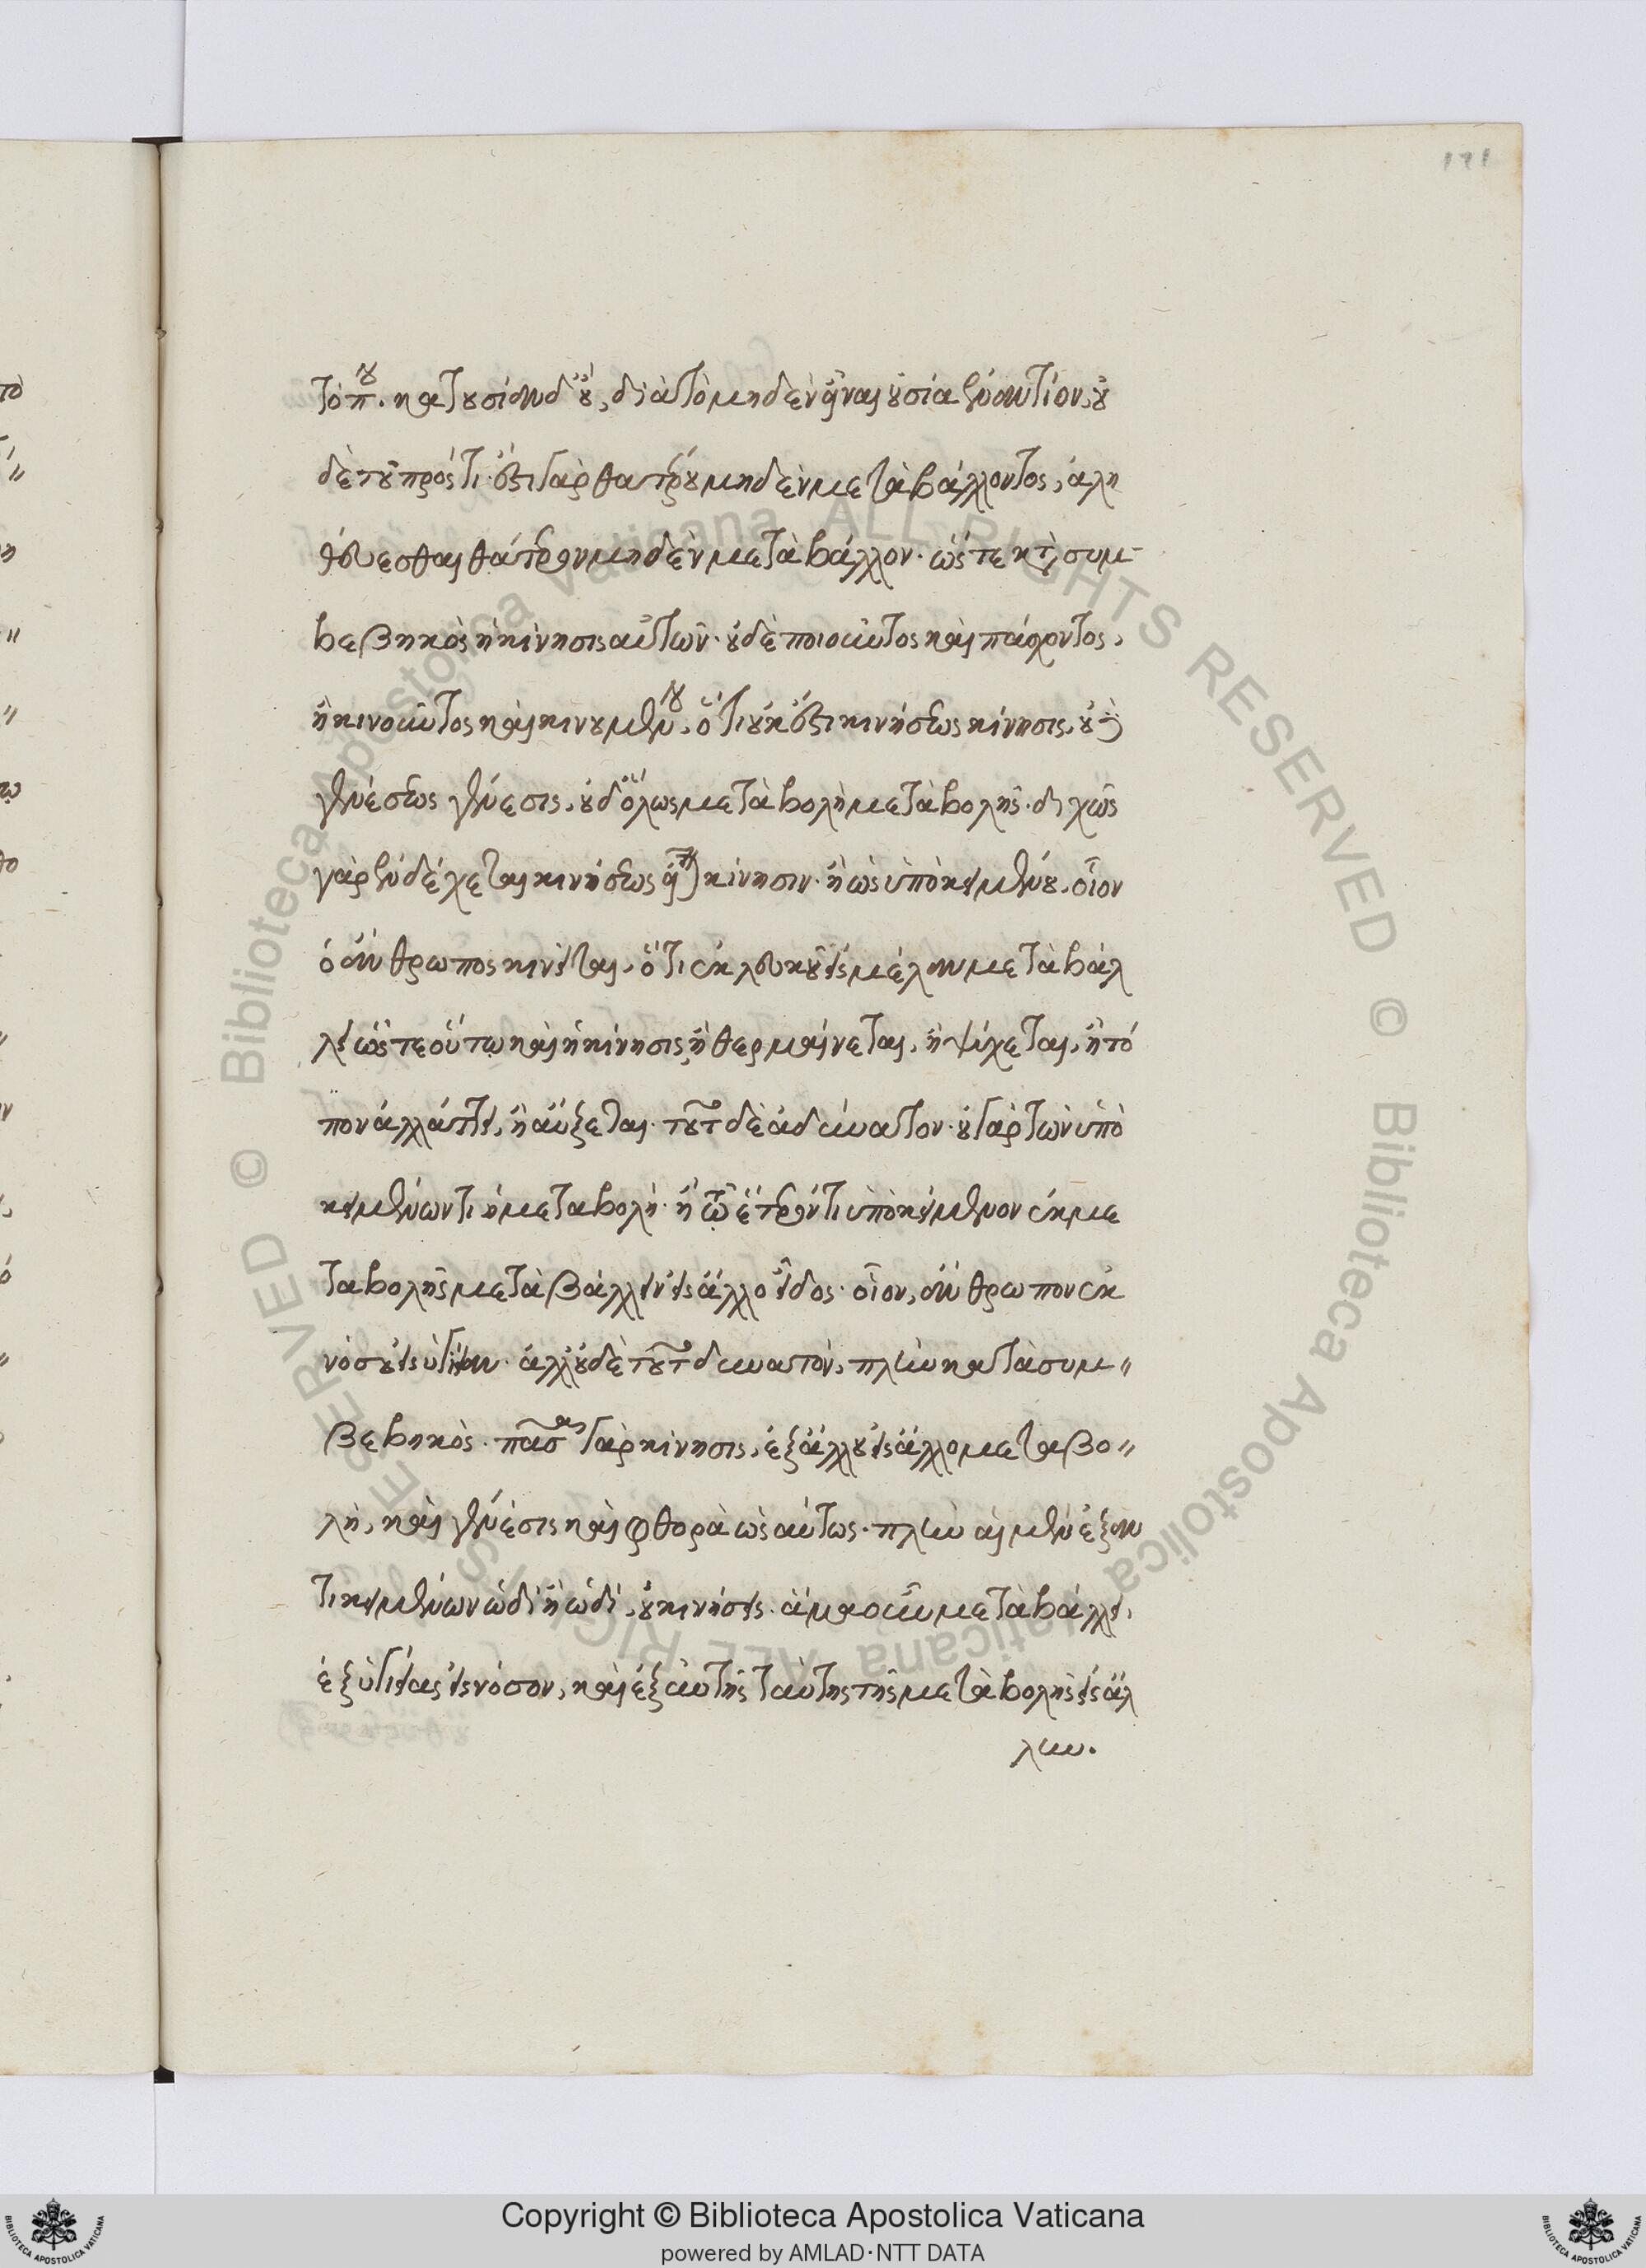 171
τόπου. κατ' οὐσίαν δ' οὔ, διὰ τὸ μηδὲν εἶναι οὐσία ἐναντίον, οὐ
δὲ τοῦ πρός τι. ἔστι γὰρ θατέρου μηδὲν μεταβάλλοντος, ἀλη
θεύεσθαι θάτερον μηδὲν μεταβάλλον. ὥστε κατὰ συμ-
βεβηκὸς ἡ κίνησις αὐτῶν. οὐδὲ ποιοῦντος καὶ πάσχοντος,
ἢ κινοῦντος καὶ κινουμένου, ὅτι οὐκ ἔστι κινήσεως κίνησις, οὐδὲ
γενέσεως γένεσις, οὐδ' ὅλως μεταβολὴ μεταβολῆς. διχῶς
γὰρ ἐνδέχεται κινήσεως εἶναι κίνησιν. ἢ ὡς ὑποκειμένου, οἷον
ὁ ἄνθρωπος κινεῖται, ὅτι ἐκ λευκοῦ εἰς μέλαν μεταβάλ
λει ὥστε οὕτω καὶ ἡ κίνησις ἢ θερμαίνεται, ἢ ψύχεται, ἢ τό
πον ἀλλάττει, ἢ αὔξεται. τοῦτο δὲ ἀδύνατον. οὐ γὰρ τῶν ὑπο
κειμένων τι ἡ μεταβολή. ἢ τῷ ἕτερόν τι ὑποκείμενον ἐκ με
ταβολῆς μεταβάλλειν εἰς ἄλλο εἶδος. οἷον, ἄνθρωπον ἐκ
νόσου εἰς ὑγίειαν. ἀλλ' οὐδὲ τοῦτο δυνατὸν, πλὴν κατὰ συμ-
βεβηκός. πᾶσα γὰρ κίνησις, ἐξ ἄλλου εἰς ἄλλο μεταβο-
λὴ, καὶ γένεσις καὶ φθορὰ ὡσαύτως. πλὴν αἱ μὲν ἐξ ἀν
τικειμένων ὡδὶ ἢ ὡδὶ, οὐ κινήσεις. ἅμα οὖν μεταβάλλει,
ἐξ ὑγιείας εἰς νόσον, καὶ ἐξ αὐτῆς ταύτης τῆς μεταβολῆς εἰς ἄλ
λην.
Copyright © Biblioteca Apostolica Vaticana
powered by AMLAD·NTT DATA